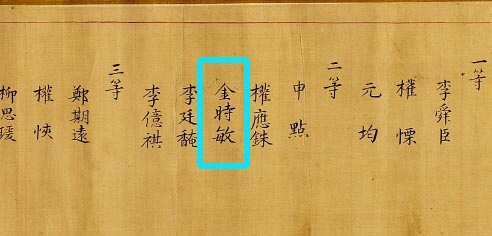 一等
李舜臣
權慄
元均
二等
申點
權應銖
金時敏
李廷馣
李億祺
三等
鄭期遠
權悏
柳思瑗